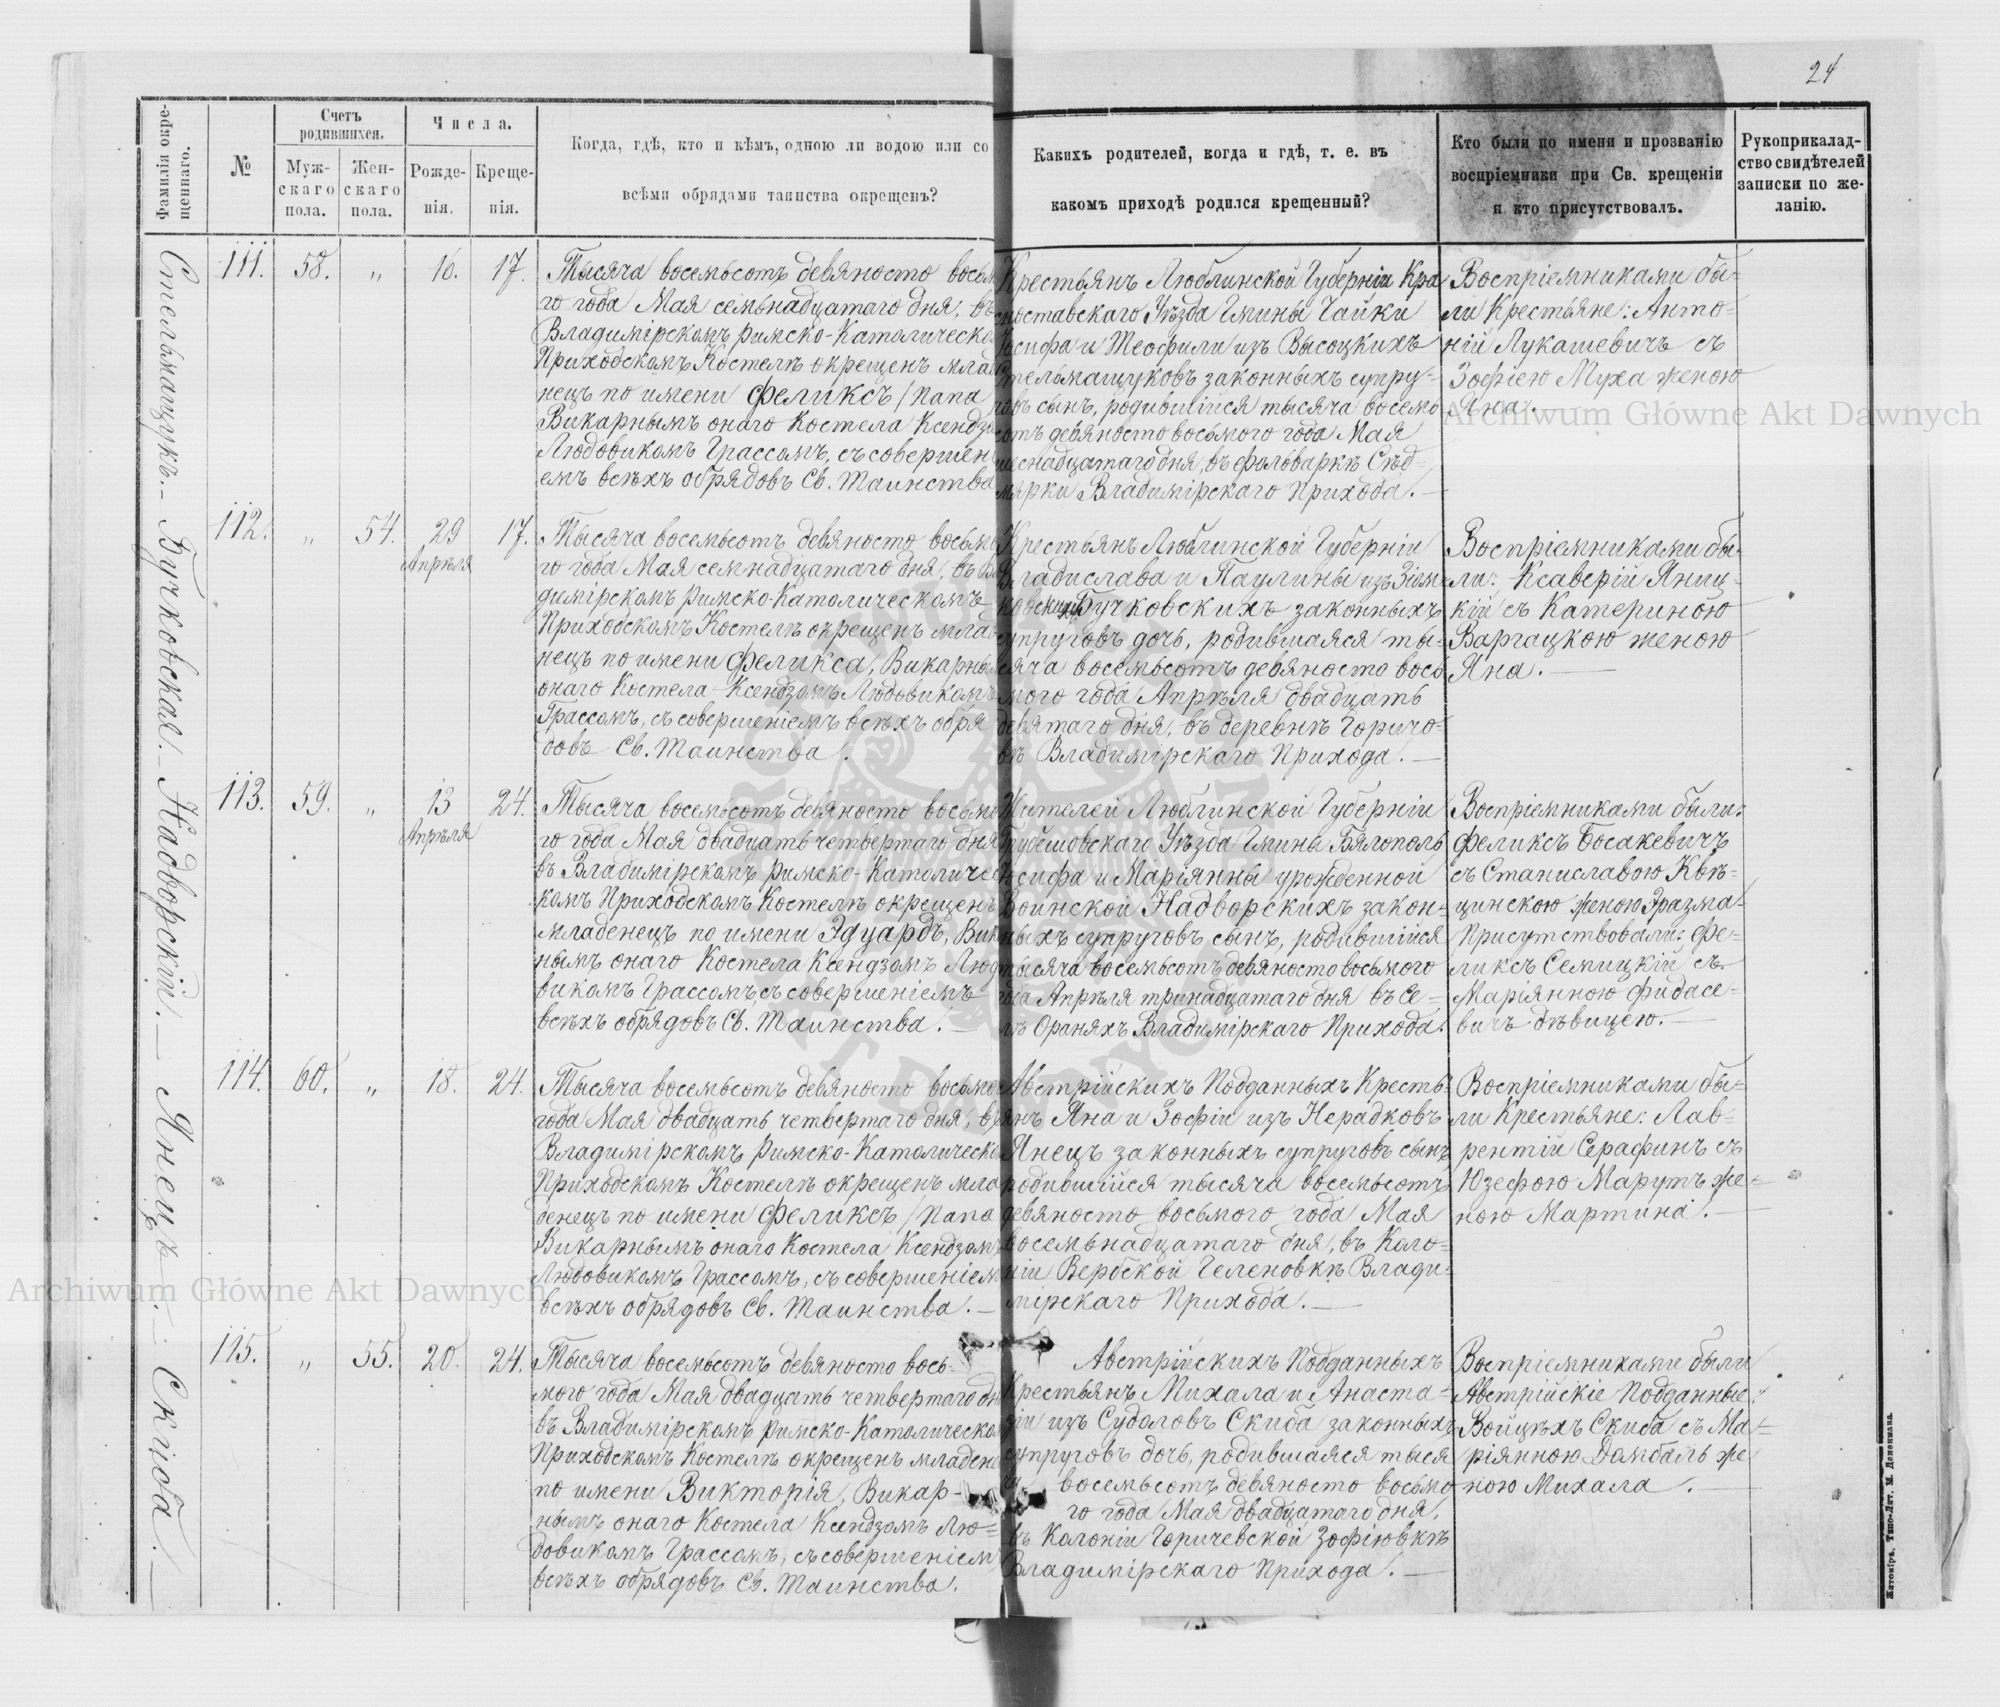 24
Фамилія окре-
щеннаго.
№
Счетъ
родившихся.
Муж-
скаго
пола.
Жен-
скаго
пола.
Числа.
Рожде-
нія.
Креще-
нія.
Когда, гдѣ, кто и кѣмъ, одною ли водою или со
всѣми обрядами таинства окрещенъ?
Какихъ родителей, когда и гдѣ, т. е. въ
какомъ приходѣ родился крещенный?
Кто были по имени и прозванію
воспріемники при Св. крещеніи
и кто присутствовалъ.
Рукоприкалад-
ство свидѣтелей
записки по же-
ланію.
Стельмащукъ.
111.
58.
"
16.
17.
Тысяча восемьсотъ девяносто восьм
го года Мая семьнадцатаго дня, въ
Владимірскомъ Римско-Католическо
Приходскомъ Костелѣ окрещенъ мла
нецъ по имени Феликсъ /Папа
Викарнымъ онаго Костела Ксендзо
Людовикомъ Грассомъ, съ совершен
емъ всѣхъ обрядовъ Св. Таинства
Крестьянъ Люблинской Губерніи Кра
ноставскаго Уѣзда Гмины Чайки
осифа и Теофили изъ Высоцкихъ
тельмащуковъ законныхъ супру-
овъ сынъ, родившійся тысяча восемь
отъ девяносто восьмого года Мая
шеснадцатаго дня, въ фольваркѣ Сѣд-
мярки Владимірскаго Прихода. —
Воспріемниками бы-
ли Крестьяне: Анто-
ній Лукашевичъ съ
Зофіею Муха женою
Яна.
Бучковская.
112.
"
54.
29
Апрѣля
17.
Тысяча восемьсотъ девяносто восьмо
го года Мая семнадцатаго дня, въ Вла
димірскомъ Римско-Католическомъ
Приходскомъ Костелѣ окрещенъ млад
нецъ по имени Феликса, Викарны
онаго Костела Ксендзомъ Людовикомъ
Грассомъ, съ совершеніемъ всѣхъ обря
довъ Св. Таинства.
Крестьянъ Люблинской Губерніи
Владислава и Паулины изъ Зіом-
ковскихъ Бучковскихъ законныхъ
супруговъ дочь, родившаяся ты-
сяча восемьсотъ девяносто вось
мого года Апрѣля двадцать
девятаго дня, въ деревнѣ Горичо-
вѣ Владимірскаго Прихода. —
Воспріемниками бы-
ли: Ксаверій Яниц-
кій съ Катериною
Варгацкою женою
Яна. —
Надворскій.
113.
59.
"
13
Апрѣля
24.
Тысяча восемьсотъ девяносто восьмо
го года Мая двадцать четвертаго дня
въ Владимірскомъ Римско-Католичес
комъ Приходскомъ Костелѣ окрещенъ
младенецъ по имени Эдуардъ, Вик
нымъ онаго Костела Ксендзомъ Людо
викомъ Грассомъ, съ совершеніемъ
всѣхъ обрядовъ Св. Таинства. —
Жителей Люблинской Губерніи
Грубешовскаго Уѣзда Гмины Бялополь
осифа и Маріянны урожденной
Воинской Надворскихъ закон-
ныхъ супруговъ сынъ, родившійся
тысяча восемьсотъ девяносто восьмого
года Апрѣля тринадцатаго дня въ се-
лѣ Ораняхъ Владимірскаго Прихода.
Воспріемниками были:
Феликсъ Босакевичъ
съ Станиславою Квѣ-
цинскою женою Эразма.
Присутствовали: Фе-
ликсъ Семицкій съ
Маріянною Фидасе-
вичъ дѣвицею. —
Янецъ.
114.
60.
"
18.
24.
Тысяча восемьсотъ девяносто восьмо
года Мая двадцать четвертаго дня, въ
Владимірскомъ Римско-Католическо
Приходскомъ Костелѣ окрещенъ мла
денецъ по имени Феликсъ /Папа
Викарнымъ онаго Костела Ксендзомъ
Людовикомъ Грассомъ, съ совершеніем
всѣхъ обрядовъ Св. Таинства. —
Австрійскихъ Подданныхъ Кресть-
янъ Яна и Зофіи изъ Нерадковъ
Янецъ законныхъ супруговъ сынъ
родившійся тысяча восемьсотъ
девяносто восьмого года Мая
восемьнадцатаго дня, въ Коло-
ніи Вербской Геленовкѣ Влади-
мірскаго Прихода. —
Воспріемниками бы-
ли Крестьяне: Лав-
рентій Серафинъ съ
Юзефою Марутъ же-
ною Мартина. —
Скиба.
115.
"
55.
20.
24.
Тысяча восемьсотъ девяносто вось-
мого года Мая двадцать четвертаго дн
въ Владимірскомъ Римско-Католическо
Приходскомъ Костелѣ окрещенъ младене
по имени Викторія, Викар-
нымъ онаго Костела Ксендзомъ Лю-
довикомъ Грассомъ, съ совершеніем
всѣхъ обрядовъ Св. Таинства.
Австрійскихъ Подданныхъ
Крестьянъ Михала и Анаста-
зіи изъ Судоловъ Скиба законныхъ
супруговъ дочь, родившаяся тыся
ча восемьсотъ девяносто восьмо
го года Мая двадцатаго дня,
въ Колоніи Горичевской Зофіювкѣ
Владимірскаго Прихода. —
Воспріемниками были
Австрійскіе Подданные:
Войцѣхъ Скиба съ Ма-
ріянною Домбаль же
ною Михала.
Житомiръ, Типо-Лит. М. Дененмана.
Archiwum Główne Akt Dawnych
Archiwum Główne Akt Dawnych